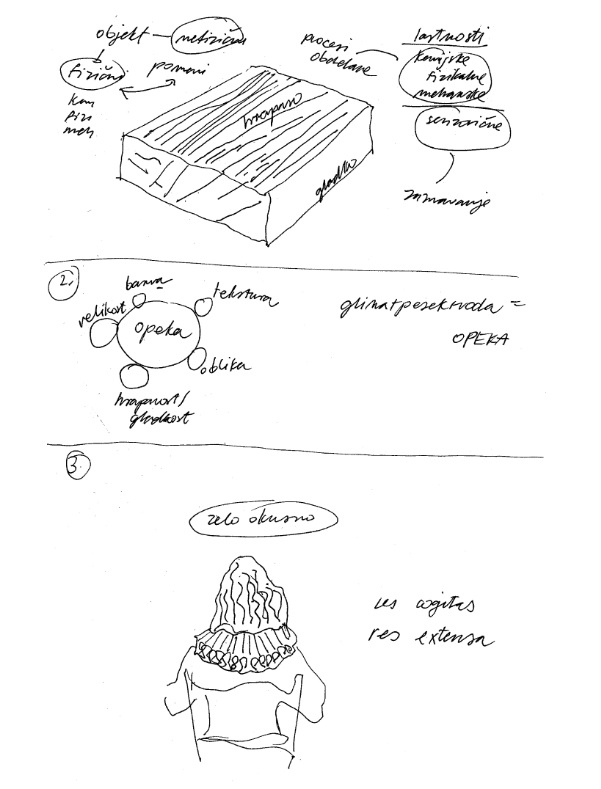 objekt
nefizični
fizični
pomeni
kem
fizi
meh
procesi
obdelave
lastnosti
kemijske
fizikalne
mehanske
senzorične
zaznavanje
hrapavo
gladko
2.
barva
tekstura
velikost
opeka
oblika
hrapavost/
gladkost
glina+pesek+voda =
OPEKA
3.
zelo okusno
res cogitas
res extensa